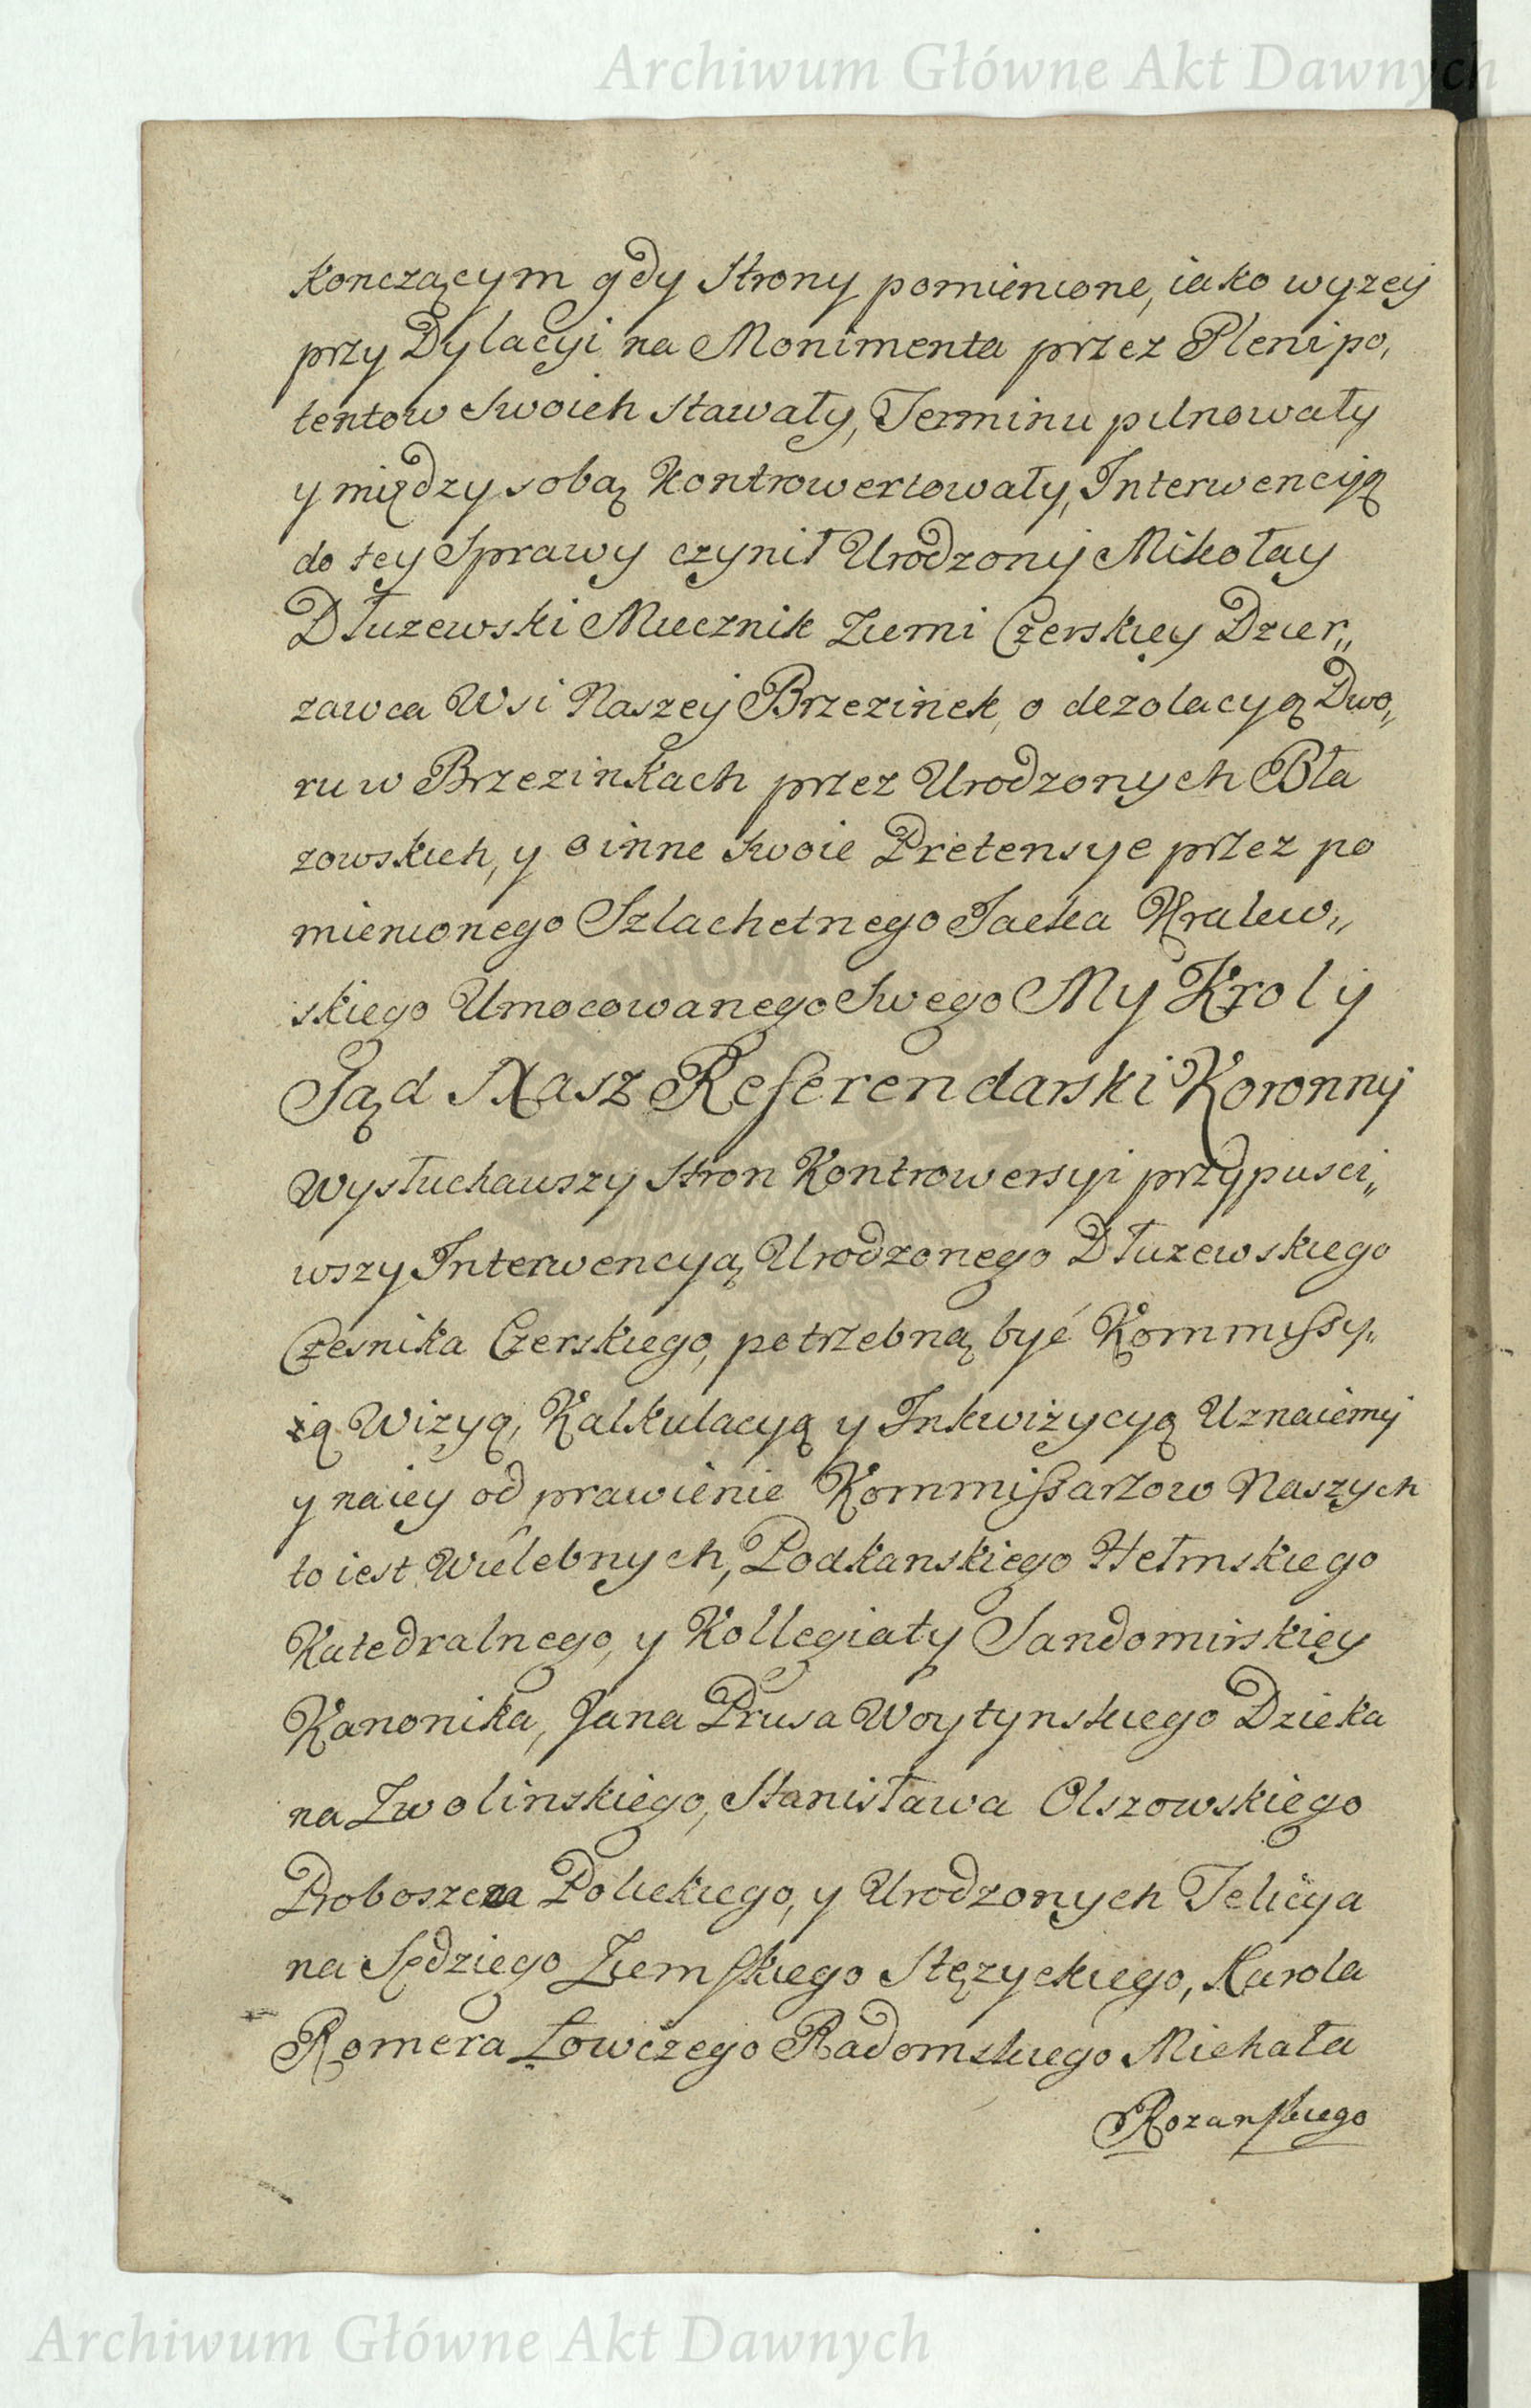 Archiwum Główne Akt Dawnych
konczącym gdy Strony pomienione, iako wyzey
przy Dylacyi na Monimenta przez Plenipo,
tentow Swoich Stawały, Terminu pilnowały
y między sobą Kontrowertowały, Interwencyą
do tey Sprawy czynił Urodzony Mikołay
Dłuzewski Miecznik Ziemi Czerskiey Dzier„
zawca Wsi Naszey Brzezinek, o dezolacyą Dwo„
ru w Brzezinkach przez Urodzonych Bła
zowskich, y o inne Swoie Pretensye przez po
mienionego Szlachetnego Jacka Kralew„
skiego Umocowanego Swego My Krol y
Sąd Nasz Referendarski Koronny
Wysłuchawszy Stron Kontrowersyi przypusci„
wszy Interwencyą Urodzonego Dłuzewskiego
Czesnika Czerskiego, potrzebną być Kommissy„
ią Wizyą, Kalkulacyą y Inkwizycyą Uznaiemy
y na iey odprawienie Kommissarzow Naszych
to iest Wielebnych, Podkanskiego Hełmskiego
Katedralnego, y Kollegiaty Sandomirskiey
Kanonika, Jana Prusa Woytynskiego Dzieka
na Zwolinskiego, Stanisława Olszowskiego
Proboszcza Polickiego, y Urodzonych Felicya
na Sędziego Ziemskiego Stęzyckiego, Karola
Romera Łowczego Radomskiego Michała
Rozanskiego
Archiwum Główne Akt Dawnych